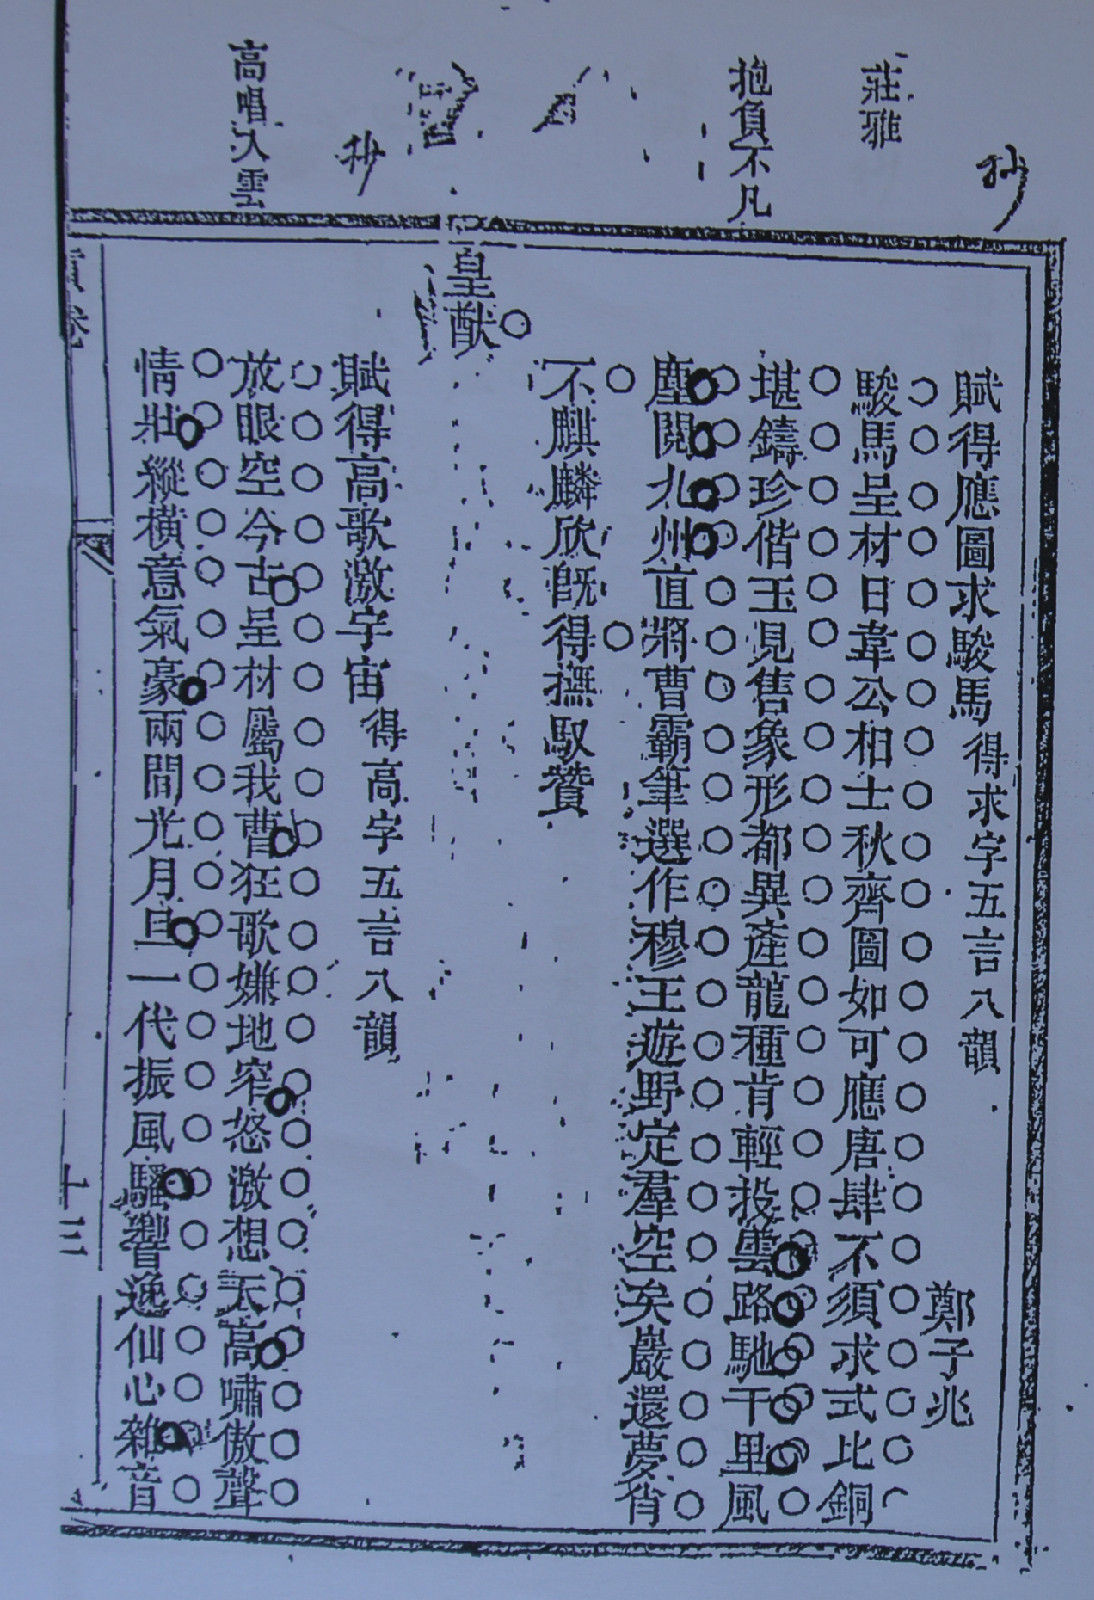 抄
莊雅
抱負不凡
抄
高唱入雲
賦得應圖求駿馬得求字五言八韻
鄭子兆
駿馬呈材日韋公相士秋齊圖如可應唐肆不須求式比銅
堪鑄珍偕玉見售象形都異產龍種肯輕投雲路馳千里風
塵閱九州直將曹霸筆選作穆王遊野定羣空矣巖還夢肖
不麒麟欣旣得撫馭贊
皇猷
賦得高歌激宇宙得高字五言八韻
放眼空今古呈材屬我曹狂歌嫌地窄怒激想天高嘯傲聲
情壯縱橫意氣豪兩間光月旦一代振風騷響逸仙心雜音
卷
十三